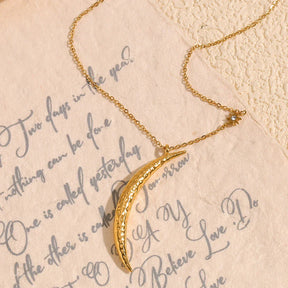 Two days in the year.
nothing can be done
One is called yesterday
of the other is called Tomorrow
DAY
Believe Love Do
Believe Love